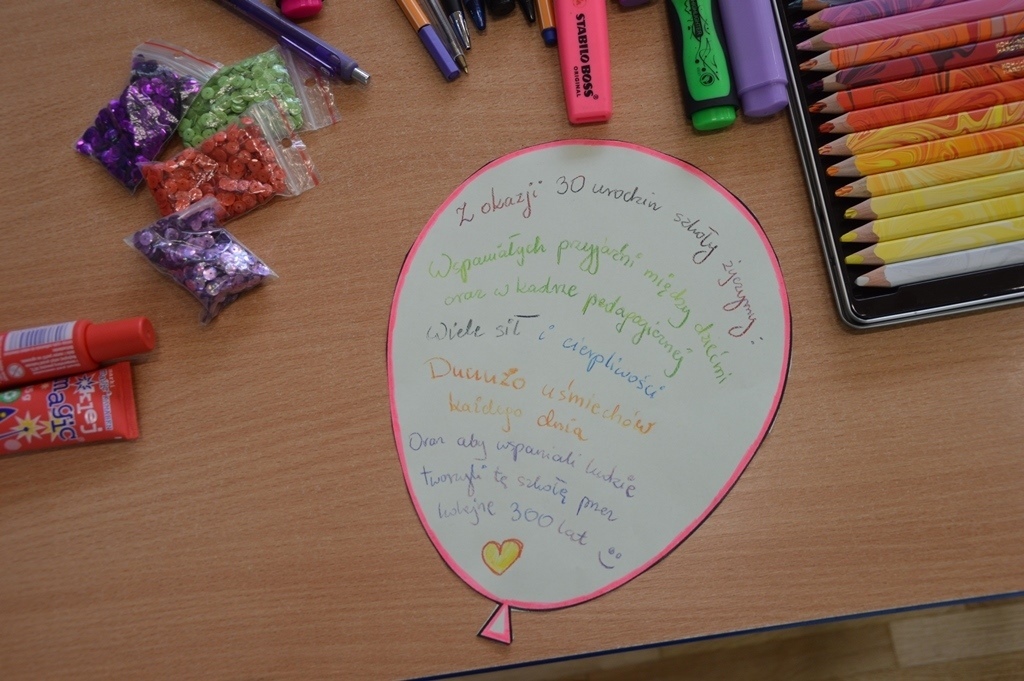 STABILO BOSS
ORIGINAL
Z okazji 30 urodzin szkoły życzymy:
Wspaniałych przyjaźni między dziećmi
oraz w kadrze pedagogicznej
Wiele sił i cierpliwości
Duuużo uśmiechów
każdego dnia
Oraz aby wspaniali ludzie
tworzyli tę szkołę przez
kolejne 300 lat
klej
magic